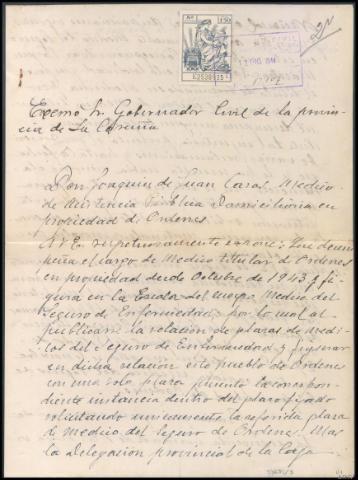 1,50
Excmo Sr. Gobernador Civil de la provin-
cia de La Coruña
Don Joaquin de Juan Casal Medico
de Asistencia Publica Domiciliaria en
propiedad de Ordenes.
A V.E. respetuosamente expone: Que desem-
peña el cargo de Medico titular de Ordenes
en propiedad desde Octubre de 1943 y fi-
gura en la Escala del Medico del
seguro de Enfermedad, por lo cual al
publicarse la relacion de plazas de Medi-
cos del Seguro de Enfermedad y figurar
en dicha relacion este pueblo de Ordenes
con una sola plaza presentó la correspon-
diente instancia dentro del plazo fijado
solicitando unicamente la referida plaza
de Medico del Seguro de Ordenes. Mas
la Delegacion provincial de la Caja